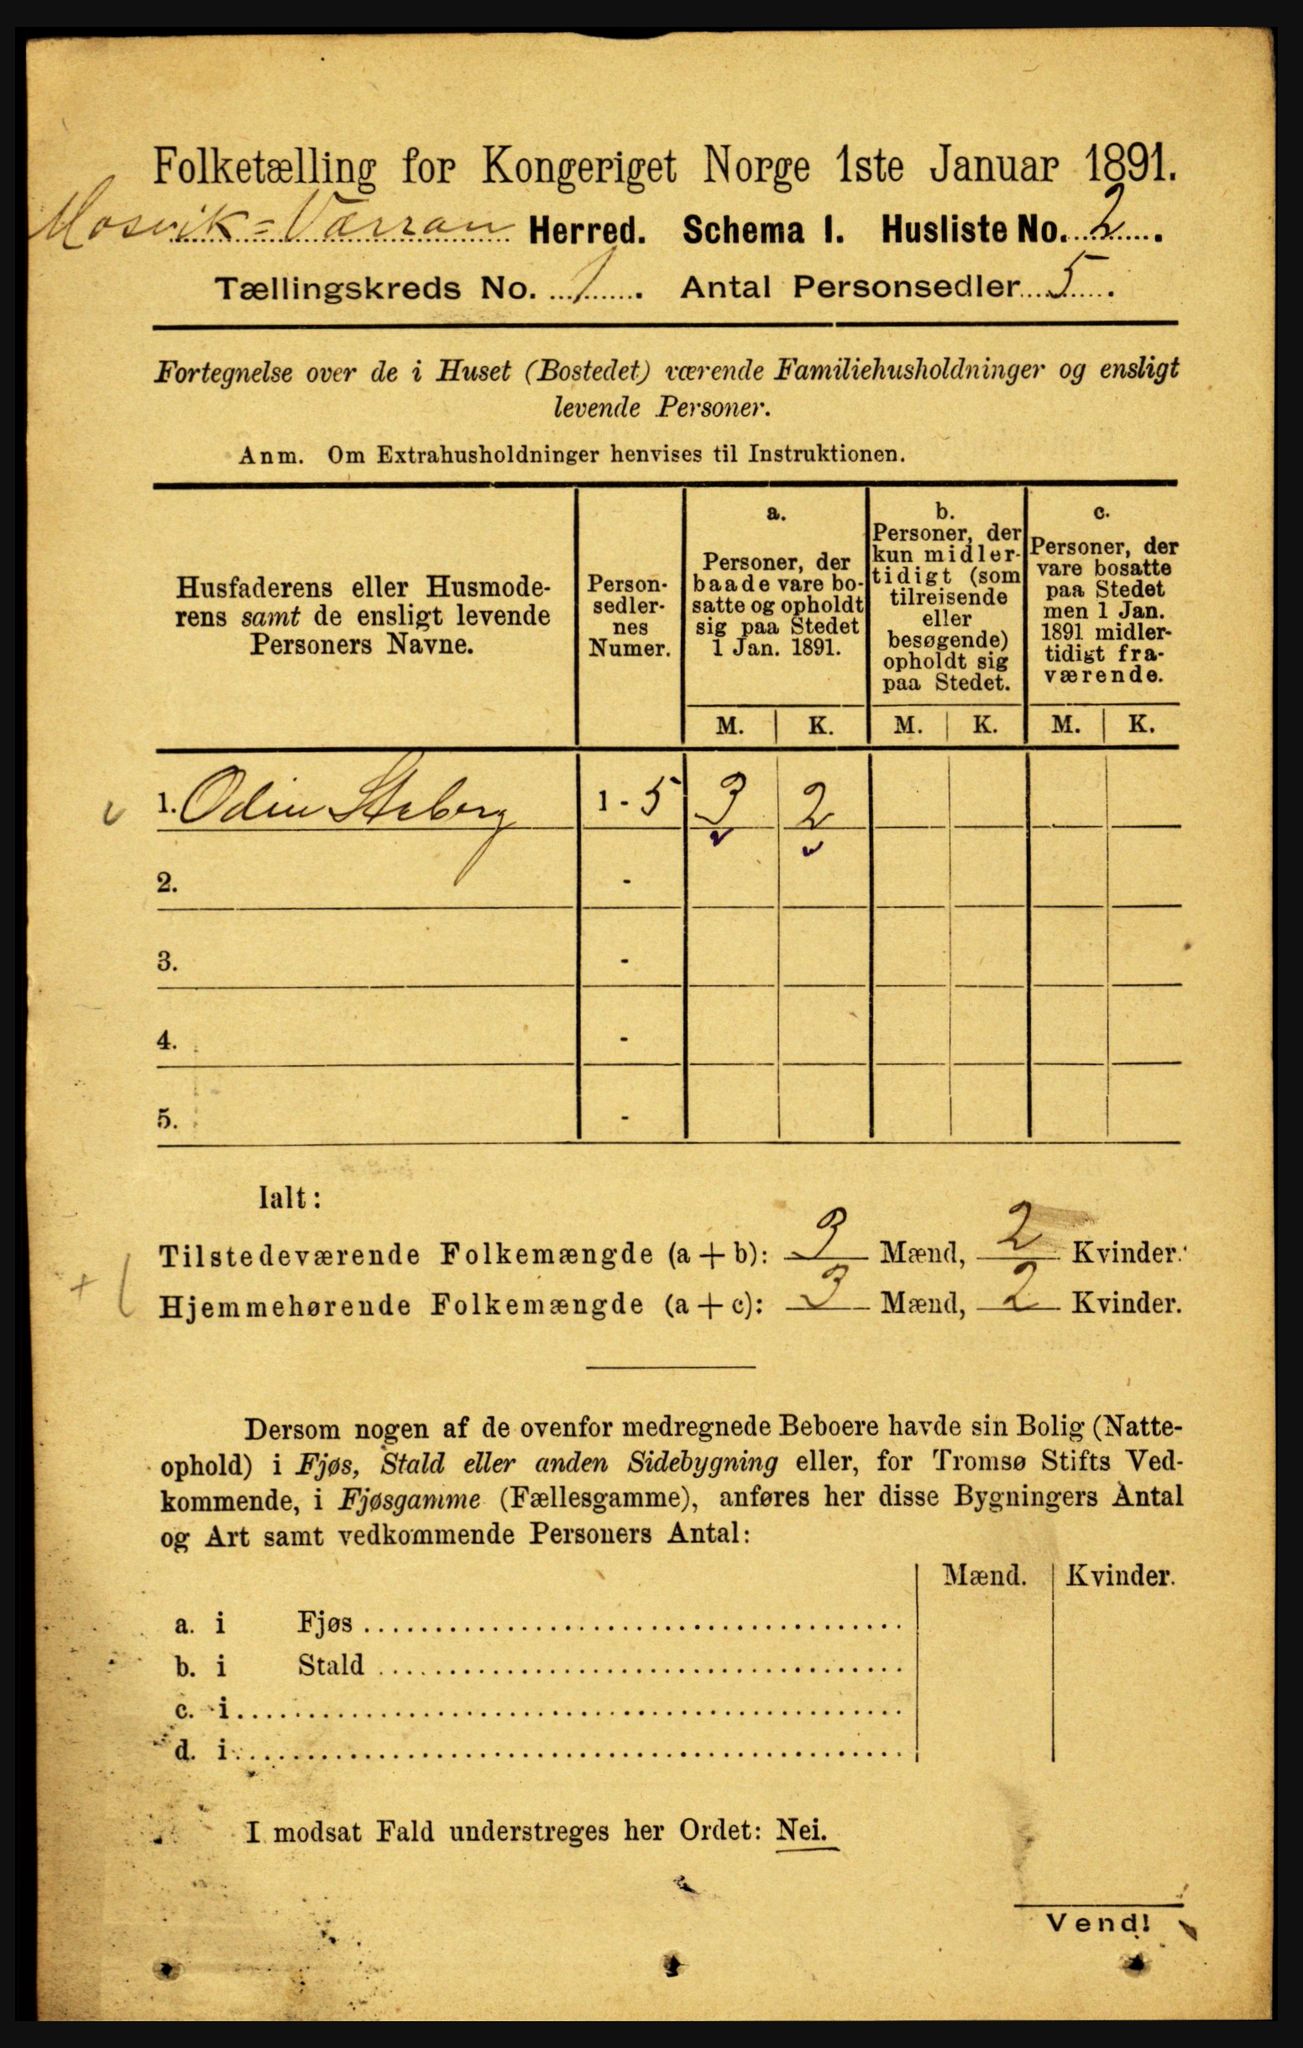 Folketælling for Kongeriget Norge 1ste Januar 1891.
Mosvik=Værran Herred. Schema I. Husliste No. 2.
Tællingskreds No. 1. Antal Personsedler 5.
Fortegnelse over de i Huset (Bostedet) værende Familiehusholdninger og ensligt
levende Personer.
Anm. Om Extrahusholdninger henvises til Instruktionen.
Husfaderens eller Husmode-
rens samt de ensligt levende
Personers Navne.
Person-
sedler-
nes
Numer.
a.
Personer, der
baade vare bo-
satte og opholdt
sig paa Stedet
1 Jan. 1891.
b.
Personer, der
kun midler-
tidigt (som
tilreisende
eller
besøgende)
opholdt sig
paa Stedet.
c.
Personer, der
vare bosatte
paa Stedet
men 1 Jan.
1891 midler-
tidigt fra-
værende.
M. K. M. K. M. K.
1. Odin 1 - 5 3 2
2. -
3. -
4. -
5. -
Ialt:
Tilstedeværende Folkemængde (a + b): 3 Mænd, 2 Kvinder.
Hjemmehørende Folkemængde (a + c): 3 Mænd, 2 Kvinder.
Dersom nogen af de ovenfor medregnede Beboere havde sin Bolig (Natte-
ophold) i Fjøs, Stald eller anden Sidebygning eller, for Tromsø Stifts Ved-
kommende, i Fjøsgamme (Fællesgamme), anføres her disse Bygningers Antal
og Art samt vedkommende Personers Antal:
Mænd. Kvinder.
a. i Fjøs
b. i Stald
c. i
d. i
I modsat Fald understreges her Ordet: Nei.
Vend!